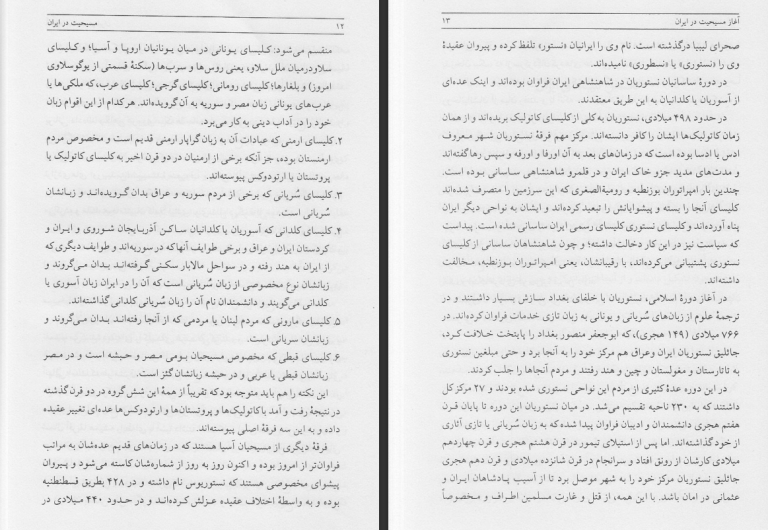 ۱۲ مسیحیت در ایران
منقسم می‌شود: کلیسای یونانی در میان یونانیان اروپا و آسیا؛ و کلیسای
سلاو درمیان ملل سلاو، یعنی روس‌ها و سرب‌ها (سکنهٔ قسمتی از یوگوسلاوی
امروز) و بلغارها؛ کلیسای رومانی؛ کلیسای گرجی؛ کلیسای عرب، که ملکی‌ها یا
عرب‌های یونانی زبان مصر و سوریه به آن گرویده‌اند. هر کدام از این اقوام زبان
خود را در آداب دینی به کار می‌برد.
۲. کلیسای ارمنی که عبادات آن به زبان گراپار ارمنی قدیم است و مخصوص مردم
ارمنستان بوده، جز آنکه برخی از ارمنیان در دو قرن اخیر به کلیسای کاتولیک یا
پروتستان یا ارتودوکس پیوسته‌اند.
۳. کلیسای سُریانی که برخی از مردم سوریه و عراق بدان گرویده‌اند و زبانشان
سُریانی است.
۴. کلیسای کلدانی که آسوریان یا کلدانیان ساکن آذربایجان شوروی و ایران و
کردستان ایران و عراق و برخی طوایف آنها که در سوریه‌اند و طوایف دیگری که
از ایران به هند رفته و در سواحل مالابار سکنی گرفته‌اند بدان می‌گروند و
زبانشان نوع مخصوصی از زبان سُریانی است که آن را در ایران زبان آسوری یا
کلدانی می‌گویند و دانشمندان نام آن را زبان سُریانی کلدانی گذاشته‌اند.
۵. کلیسای مارونی که مردم لبنان یا مردمی که از آنجا رفته‌اند بدان می‌گروند و
زبانشان سریانی است.
۶. کلیسای قبطی که مخصوص مسیحیان بومی مصر و حبشه است و در مصر
زبانشان قبطی یا عربی و در حبشه زبانشان گئز است.
این نکته را هم باید متوجه بود که تقریباً از همهٔ این شش گروه در دو قرن گذشته
در نتیجهٔ رفت و آمد با کاتولیک‌ها و پروتستان‌ها و ارتودوکس‌ها عده‌ای تغییر عقیده
داده و به این سه فرقهٔ اصلی پیوسته‌اند.
فرقهٔ دیگری از مسیحیان آسیا هستند که در زمان‌های قدیم عده‌شان به مراتب
فراوان‌تر از امروز بوده و اکنون روز به روز از شماره‌شان کاسته می‌شود و پیروان
پیشوای مخصوصی هستند که نستوریوس نام داشته و در ۴۲۸ بطریق قسطنطنیه
بوده و به واسطهٔ اختلاف عقیده عزلش کرده‌اند و در حدود ۴۴۰ میلادی در
آغاز مسیحیت در ایران ۱۳
صحرای لیبیا درگذشته است. نام وی را ایرانیان «نستور» تلفظ کرده و پیروان عقیدهٔ
وی را «نستوری» یا «نسطوری» نامیده‌اند.
در دورهٔ ساسانیان نستوریان در شاهنشاهی ایران فراوان بوده‌اند و اینک عده‌ای
از آسوریان یا کلدانیان به این طریق معتقدند.
در حدود ۴۹۸ میلادی، نستوریان به کلی از کلیسای کاتولیک بریده‌اند و از همان
زمان کاتولیک‌ها ایشان را کافر دانسته‌اند. مرکز مهم فرقهٔ نستوریان شهر معروف
ادس یا ادسا بوده است که در زمان‌های بعد به آن اورفا و اورفه و سپس رها گفته‌اند
و مدت‌های مدید جزو خاک ایران و در قلمرو شاهنشاهی ساسانی بوده است.
چندین بار امپراتوران بوزنطیه و رومیةالصغری که این سرزمین را متصرف شده‌اند
کلیسای آنجا را بسته و پیشوایانش را تبعید کرده‌اند و ایشان به نواحی دیگر ایران
پناه آورده‌اند و کلیسای نستوری کلیسای رسمی ایران ساسانی شده است. پیداست
که سیاست نیز در این کار دخالت داشته؛ و چون شاهنشاهان ساسانی از کلیسای
نستوری پشتیبانی می‌کرده‌اند، با رقیبانشان، یعنی امپراتوران بوزنطیه، مخالفت
داشته‌اند.
در آغاز دورهٔ اسلامی، نستوریان با خلفای بغداد سازش بسیار داشتند و در
ترجمهٔ علوم از زبان‌های سُریانی و یونانی به زبان تازی خدمات فراوان کرده‌اند. در
۷۶۶ میلادی (۱۴۹ هجری)، که ابوجعفر منصور بغداد را پایتخت خلافت کرد،
جاثلیق نستوریان ایران وعراق هم مرکز خود را به آنجا برد و حتی مبلغین نستوری
به تاتارستان و مغولستان و چین و هند رفتند و مردم آنجاها را جلب کردند.
در این دوره عدهٔ کثیری از مردم این نواحی نستوری شده بودند و ۲۷ مرکز کل
داشتند که به ۲۳۰ ناحیه تقسیم می‌شد. در میان نستوریان این دوره تا پایان قرن
هفتم هجری دانشمندان و ادیبان فراوان پیدا شده که به زبان سُریانی یا تازی آثاری
از خود گذاشته‌اند. اما پس از استیلای تیمور در قرن هشتم هجری و قرن چهاردهم
میلادی کارشان از رونق افتاد و سرانجام در قرن شانزده میلادی و قرن دهم هجری
جاثلیق نستوریان مرکز خود را به شهر موصل برد تا از آسیب پادشاهان ایران و
عثمانی در امان باشد. با این همه، از قتل و غارت مسلمین اطراف و مخصوصاً